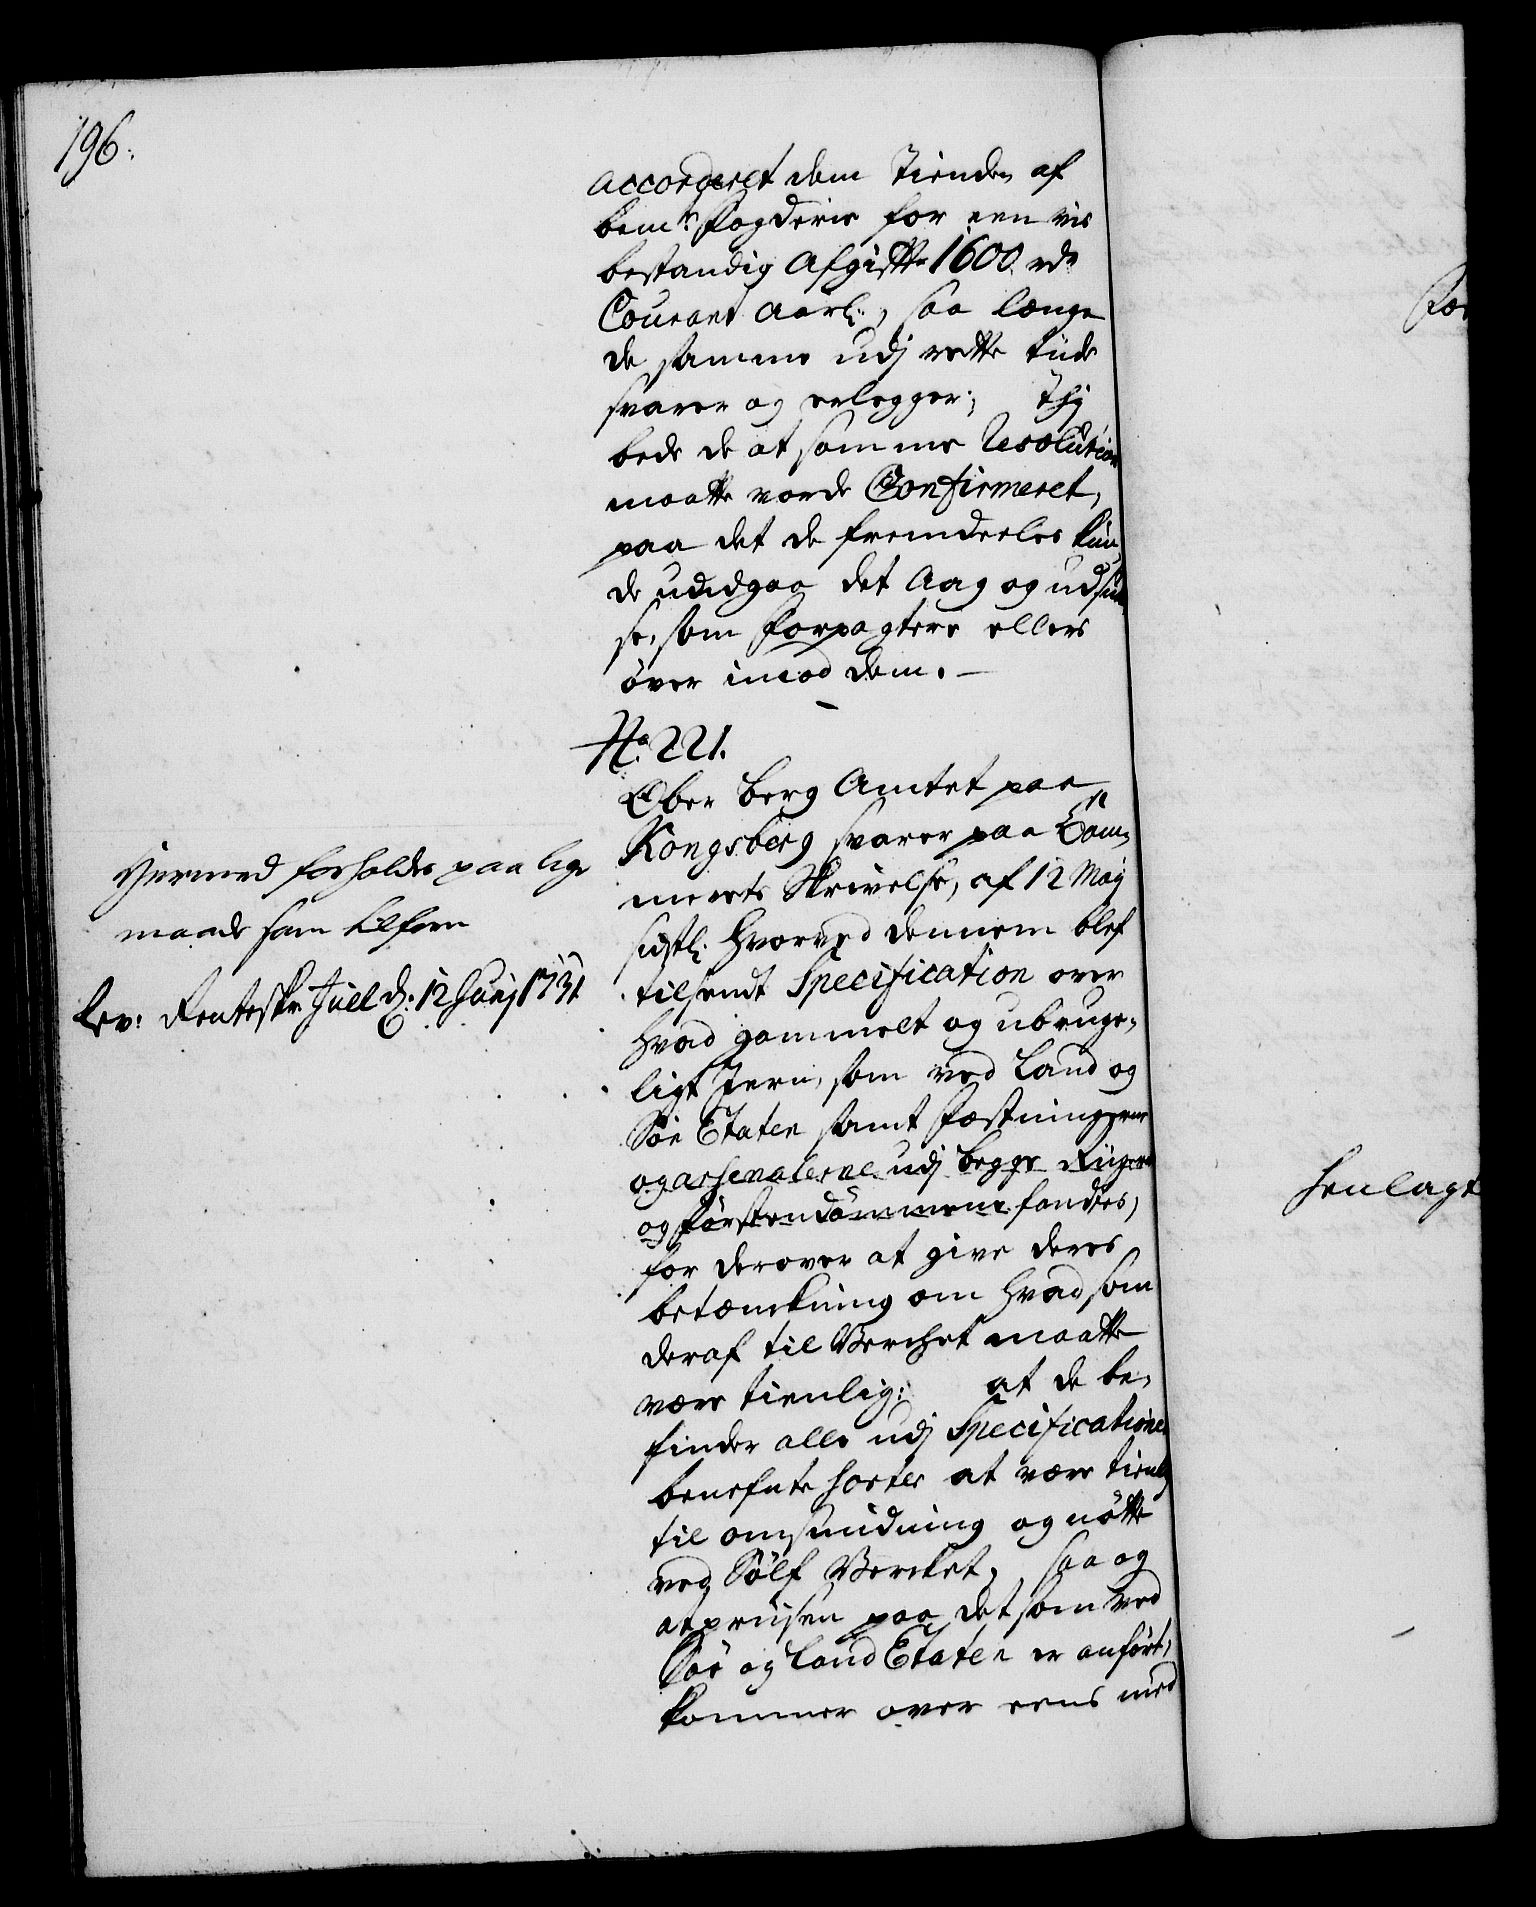 196.
accorderet dem Tienden af
bem:te Fogderie for een vis
bestandig Afgifft 1600 rdr
Courant aarl:, saa længe
de samme udj rette tiide
svarer og erlegger; Thj
bede de at samme Resolution
maatte vorde Confirmeret,
paa det de fremdeeles kun-
de undgaa det Aag og udsu-
se, som Forpagtere ellers
över imod dem. —
No. 221.
Ober Berg Amtet paa
Kongsberg svarer paa Cam-
merets Skrivelse, af 12 Maij
sidstl: hvorved dennem blef
tilsendt Specification over
hvad gammelt og ubruge-
ligt Jern, som ved Land og
Söe Etaten samt Fæstningerne
og arsenalerne udj begge Riigerne
og Förstendömmene fandtes,
for derover at give deres
betænkning om hvad som
deraf til Verchet maatte
være tienlig: at de be-
finder alle udj Specificationen
benefnte sorter at være tienlig
til omsmidning og nötte
ved Sölf Verket, saa og
at priisen paa det som ved
Söe og Land Etaten er anfört,
kommer over eens med
Hermed forholdes paa lige
maade som tilforn
Lev: Renteskr: Juel d: 12 Junij 1731
For
henlagt